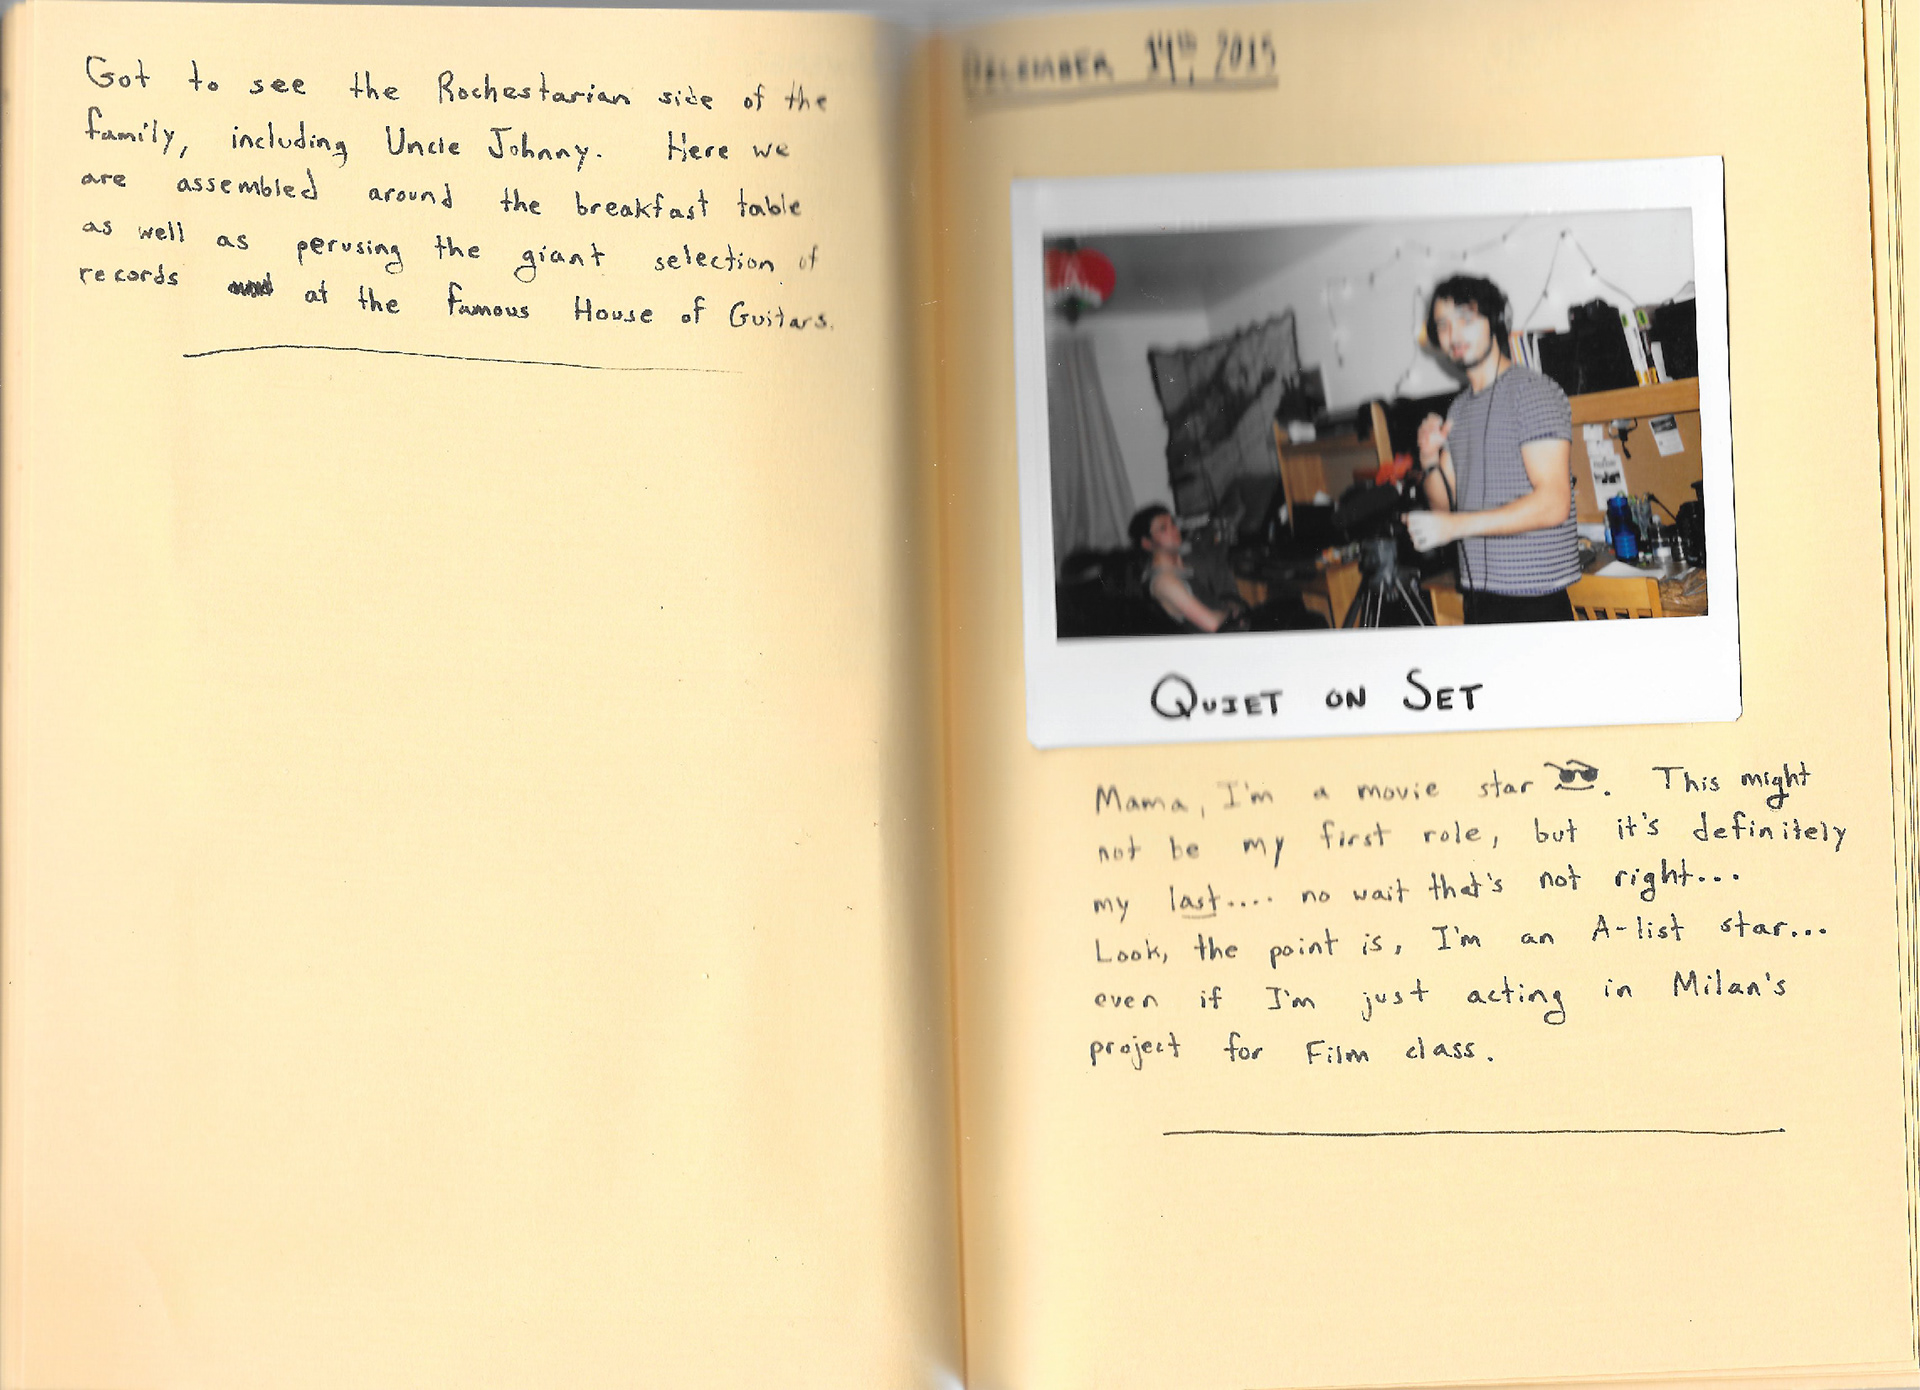 Got to see the Rochestarian side of the
family, including Uncle Johnny. Here we
are assembled around the breakfast table
as well as perusing the giant selection of
records at the famous House of Guitars.
DECEMBER 14th, 2015
QUIET ON SET
Mama, I'm a movie star. This might
not be my first role, but it's definitely
my last.... no wait that's not right...
Look, the point is, I'm an A-list star...
even if I'm just acting in Milan's
project for Film class.